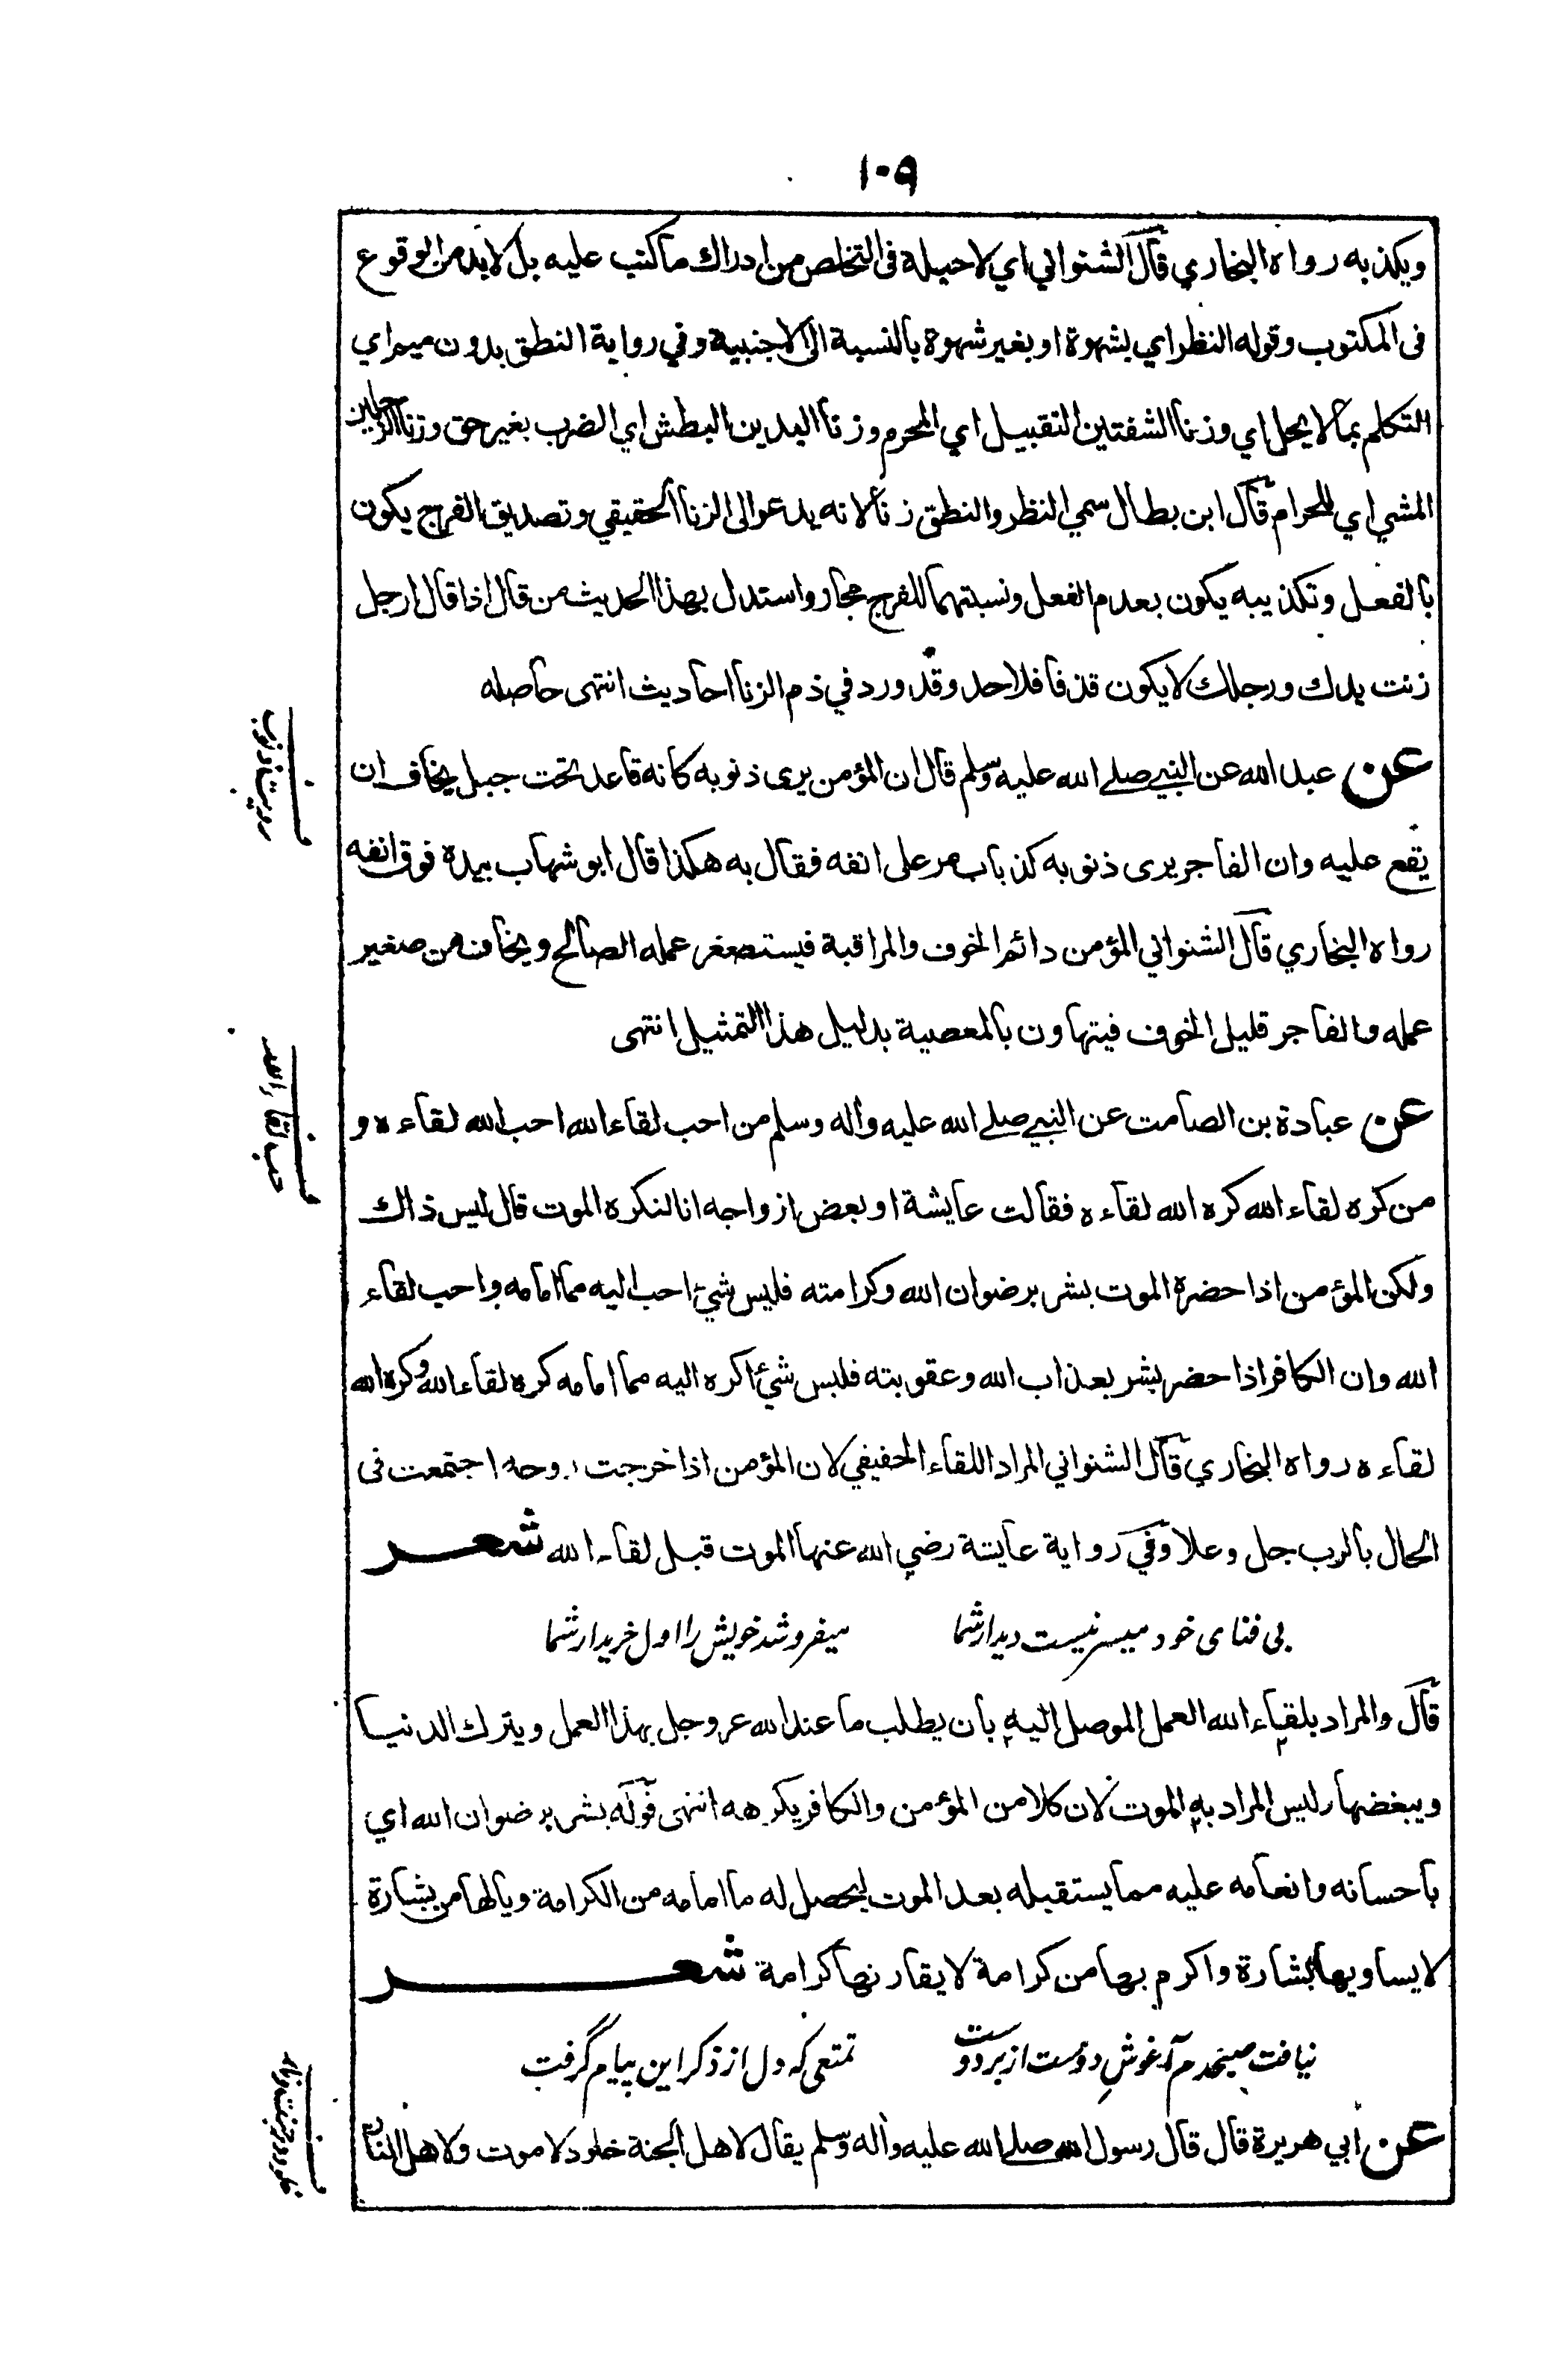 ١٠٩
ويكذبه رواه البخاري قال الشنواني اي لاحيلة فى التخلص من ادراك ماكتب عليه بل لابد من الوقوع
فى المكتوب وقوله النظر اي بشهوة او بغير شهوة بالنسبة الى الاجنبية وفي رواية النطق بدون ميم اي
التكلم بما لا يحل اي وزنا الشفتين التقبيل اي المحرم وزنا اليدين البطش اي الضرب بغير حق وزنا الرجلين
المشي اي للحرام قال ابن بطال سمي النظر والنطق زنا لانه يدعو الى الزنا الحقيقي وتصديق الفرج يكون
بالفعل وتكذيبه يكون بعدم الفعل ونسبتهما للفرج مجاز واستدل بهذا الحديث من قال اذا قال ارجل
زنت يدك ورجلك لا يكون قذفا فلا حد وقد ورد في ذم الزنا احاديث انتهى حاصله
عن عبد الله عن النبي صلى الله عليه وسلم قال ان المؤمن يرى ذنوبه كانه قاعد تحت جبل يخاف ان
يقع عليه وان الفاجر يرى ذنوبه كذباب مر على انفه فقال به هكذا قال ابو شهاب بيده فوق انفه
رواه البخاري قال الشنواني المؤمن دائم الخوف والمراقبة فيستصغر عمله الصالح ويخاف من صغير
عمله والفاجر قليل الخوف فيتهاون بالمعصية بدليل هذا التمثيل انتهى
عن عبادة بن الصامت عن النبي صلى الله عليه وأله وسلم من احب لقاء الله احب الله لقاءه و
من كره لقاء الله كره الله لقاءه فقالت عايشة او بعض ازواجه انا لنكره الموت قال ليس ذاك
ولكن المؤمن اذا حضرة الموت بشر برضوان الله وكرامته فليس شيئ احب اليه مما امامه واحب لقاء
الله وان الكافر اذا حضر بشر بعذاب الله وعقوبته فليس شيئ اكره اليه مما امامه كره لقاء الله وكره الله
لقاءه رواه البخاري قال الشنواني المراد اللقاء الحقيقي لان المؤمن اذا خرجت روحه اجتمعت فى
الحال بالرب جل وعلا وفي رواية عايشة رضي الله عنها الموت قبل لقاء الله شعر
بى فناى خود ميسر نيست ديدار شما ميفروشد خويش را اول خريدار شما
قال والمراد بلقاء الله العمل الموصل اليه بان يطلب ما عند الله عز وجل بهذا العمل ويترك الدنيا
ويبغضها وليس المراد به الموت لان كلا من المؤمن والكافر يكرهه انتهى قوله بشر برضوان الله اي
باحسانه وانعامه عليه مما يستقبله بعد الموت ليحصل له ما امامه من الكرامة ويالها من بشارة
لا يساويها بشارة واكرم بها من كرامة لا يقارنها كرامة شعر
نيافت صبحدم آغوش دوست از بر دوست تمتعى كه دل از ذكر اين پيام گرفت
عن ابي هريرة قال قال رسول الله صلى الله عليه وأله وسلم يقال لاهل الجنة خلود لا موت ولاهل النار
رويت ذنوب
حب لقاء الله